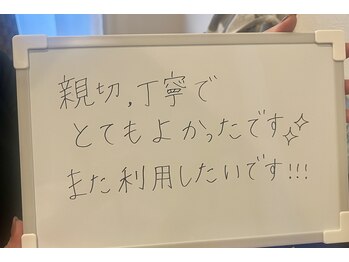 親切,丁寧で
とてもよかったです✧✧
また利用したいです!!!